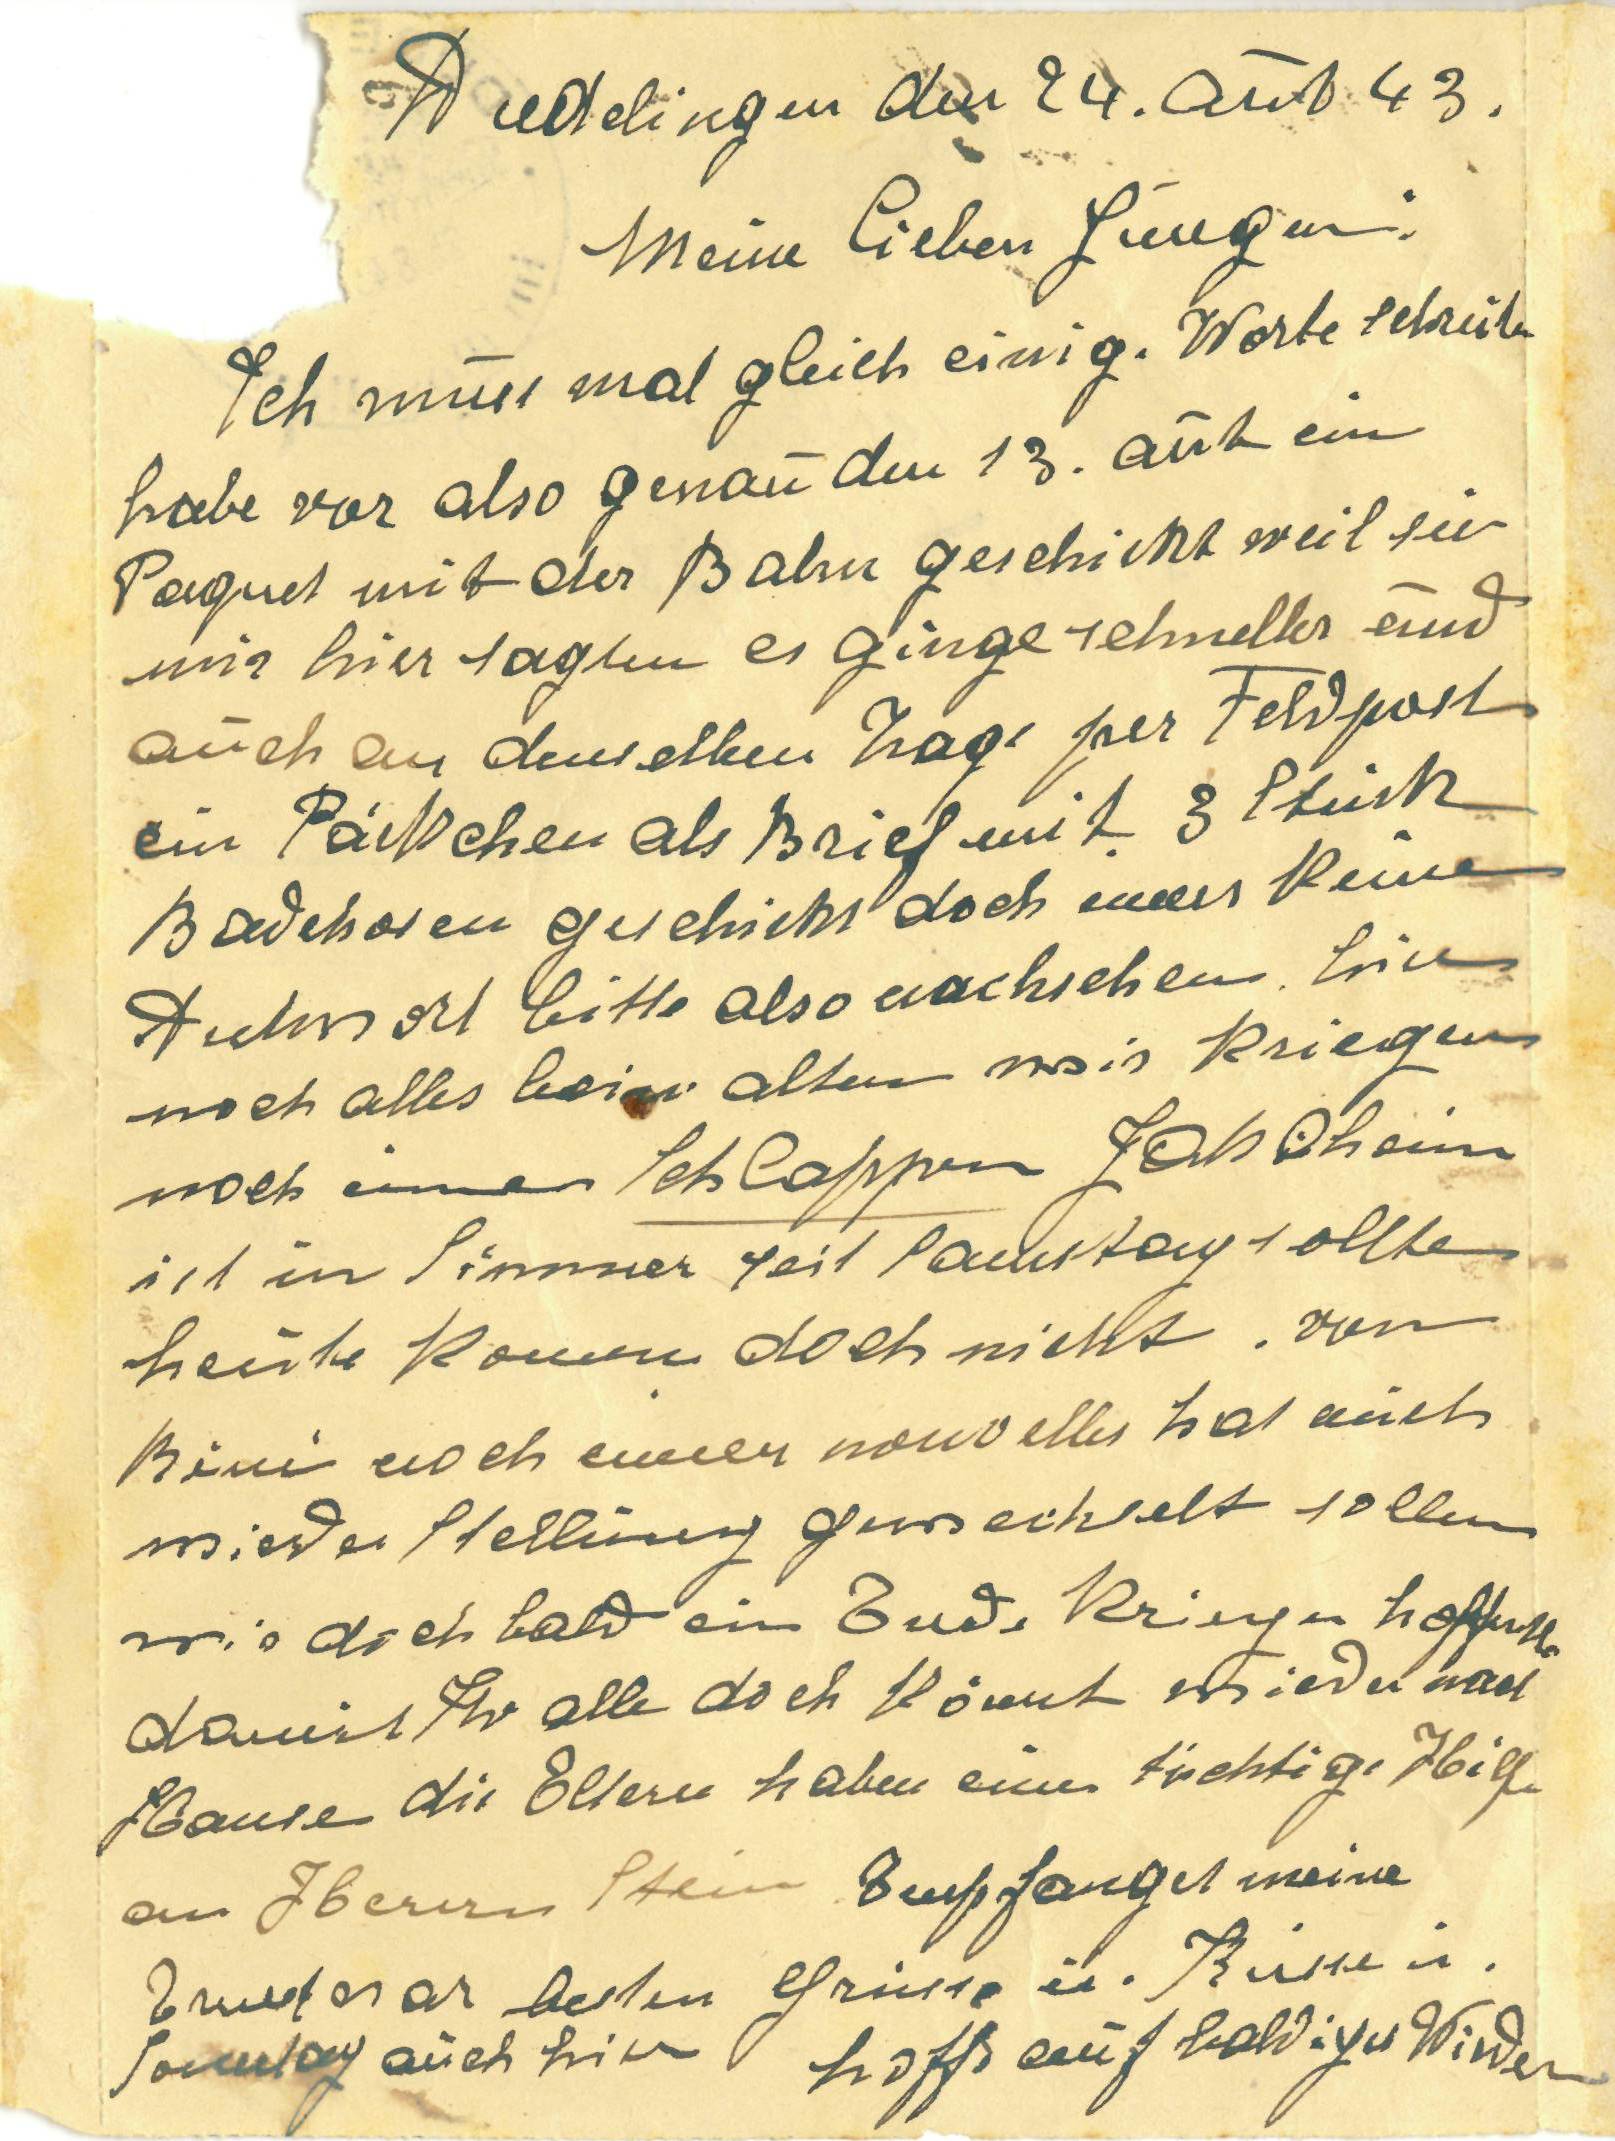 Dudelingen den 24. Aūt 43.
Meine lieben Jūngen.
Ich mūss mal gleich einig. Worte schreiben
habe vor also genaū den 13. aūt ein
Paquet mit der Bahn geschickt weil sie
mir hier sagten es ginge schneller ūnd
aūch an denselben Tage per Feldpost
ein Päckchen als Brief mit 3 Stück
Badehosen geschickt doch immer keine
Antwort bitte also nachsehen. hier
noch alles beim alten wir kriegen
noch immer Schlappen
ist in Simmer seit Samstag sollte
heūte kommen doch nicht. von
noch immer nouvelles hat aūch
wieder Stellūng gewechselt sollen
wir doch bald ein Ende kriegen
damit Ihr alle doch könnt wieder nach
Hause die Eltern haben eine tüchtige Hilfe
an Herrn Stein Empfanget meine
war besten Grüsse ū. Küsse ū.
Sonntag aūch hier hoffe aūf baldiges Wieder